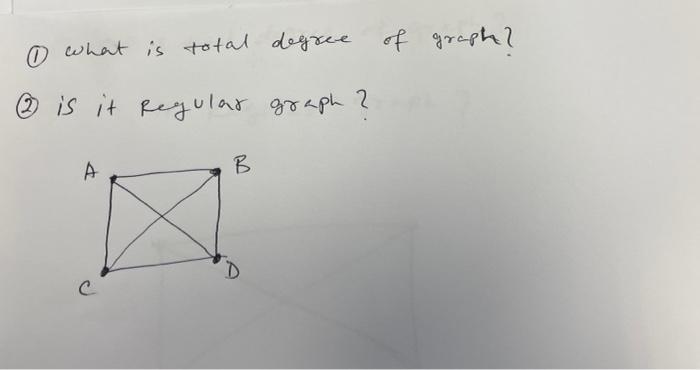 ① what is total degree of graph?
② is it Regular graph?
A B
C D